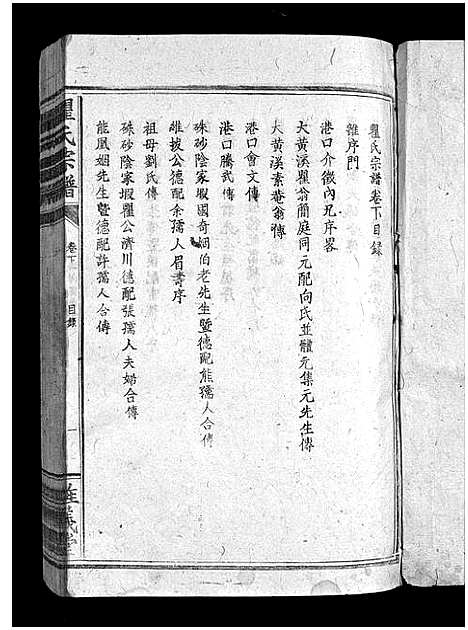 瞿氏宗譜卷下目錄
雜序門
港口介徵內兄序畧
大黃溪瞿翁簡庭同元配向氏並體元集元先生傳
大黃溪素菴翁傳
港口會文傳
港口勝武傳
硃砂陰家塅國奇姻伯老先生暨德配熊孺人合傳
雄披公德配余孺人眉壽序
祖母劉氏傳
硃砂陰家塅瞿公濟川德配張孺人夫婦合傳
能鳳姻先生暨德配許孺人合傳
瞿氏宗譜
卷下
目錄
一